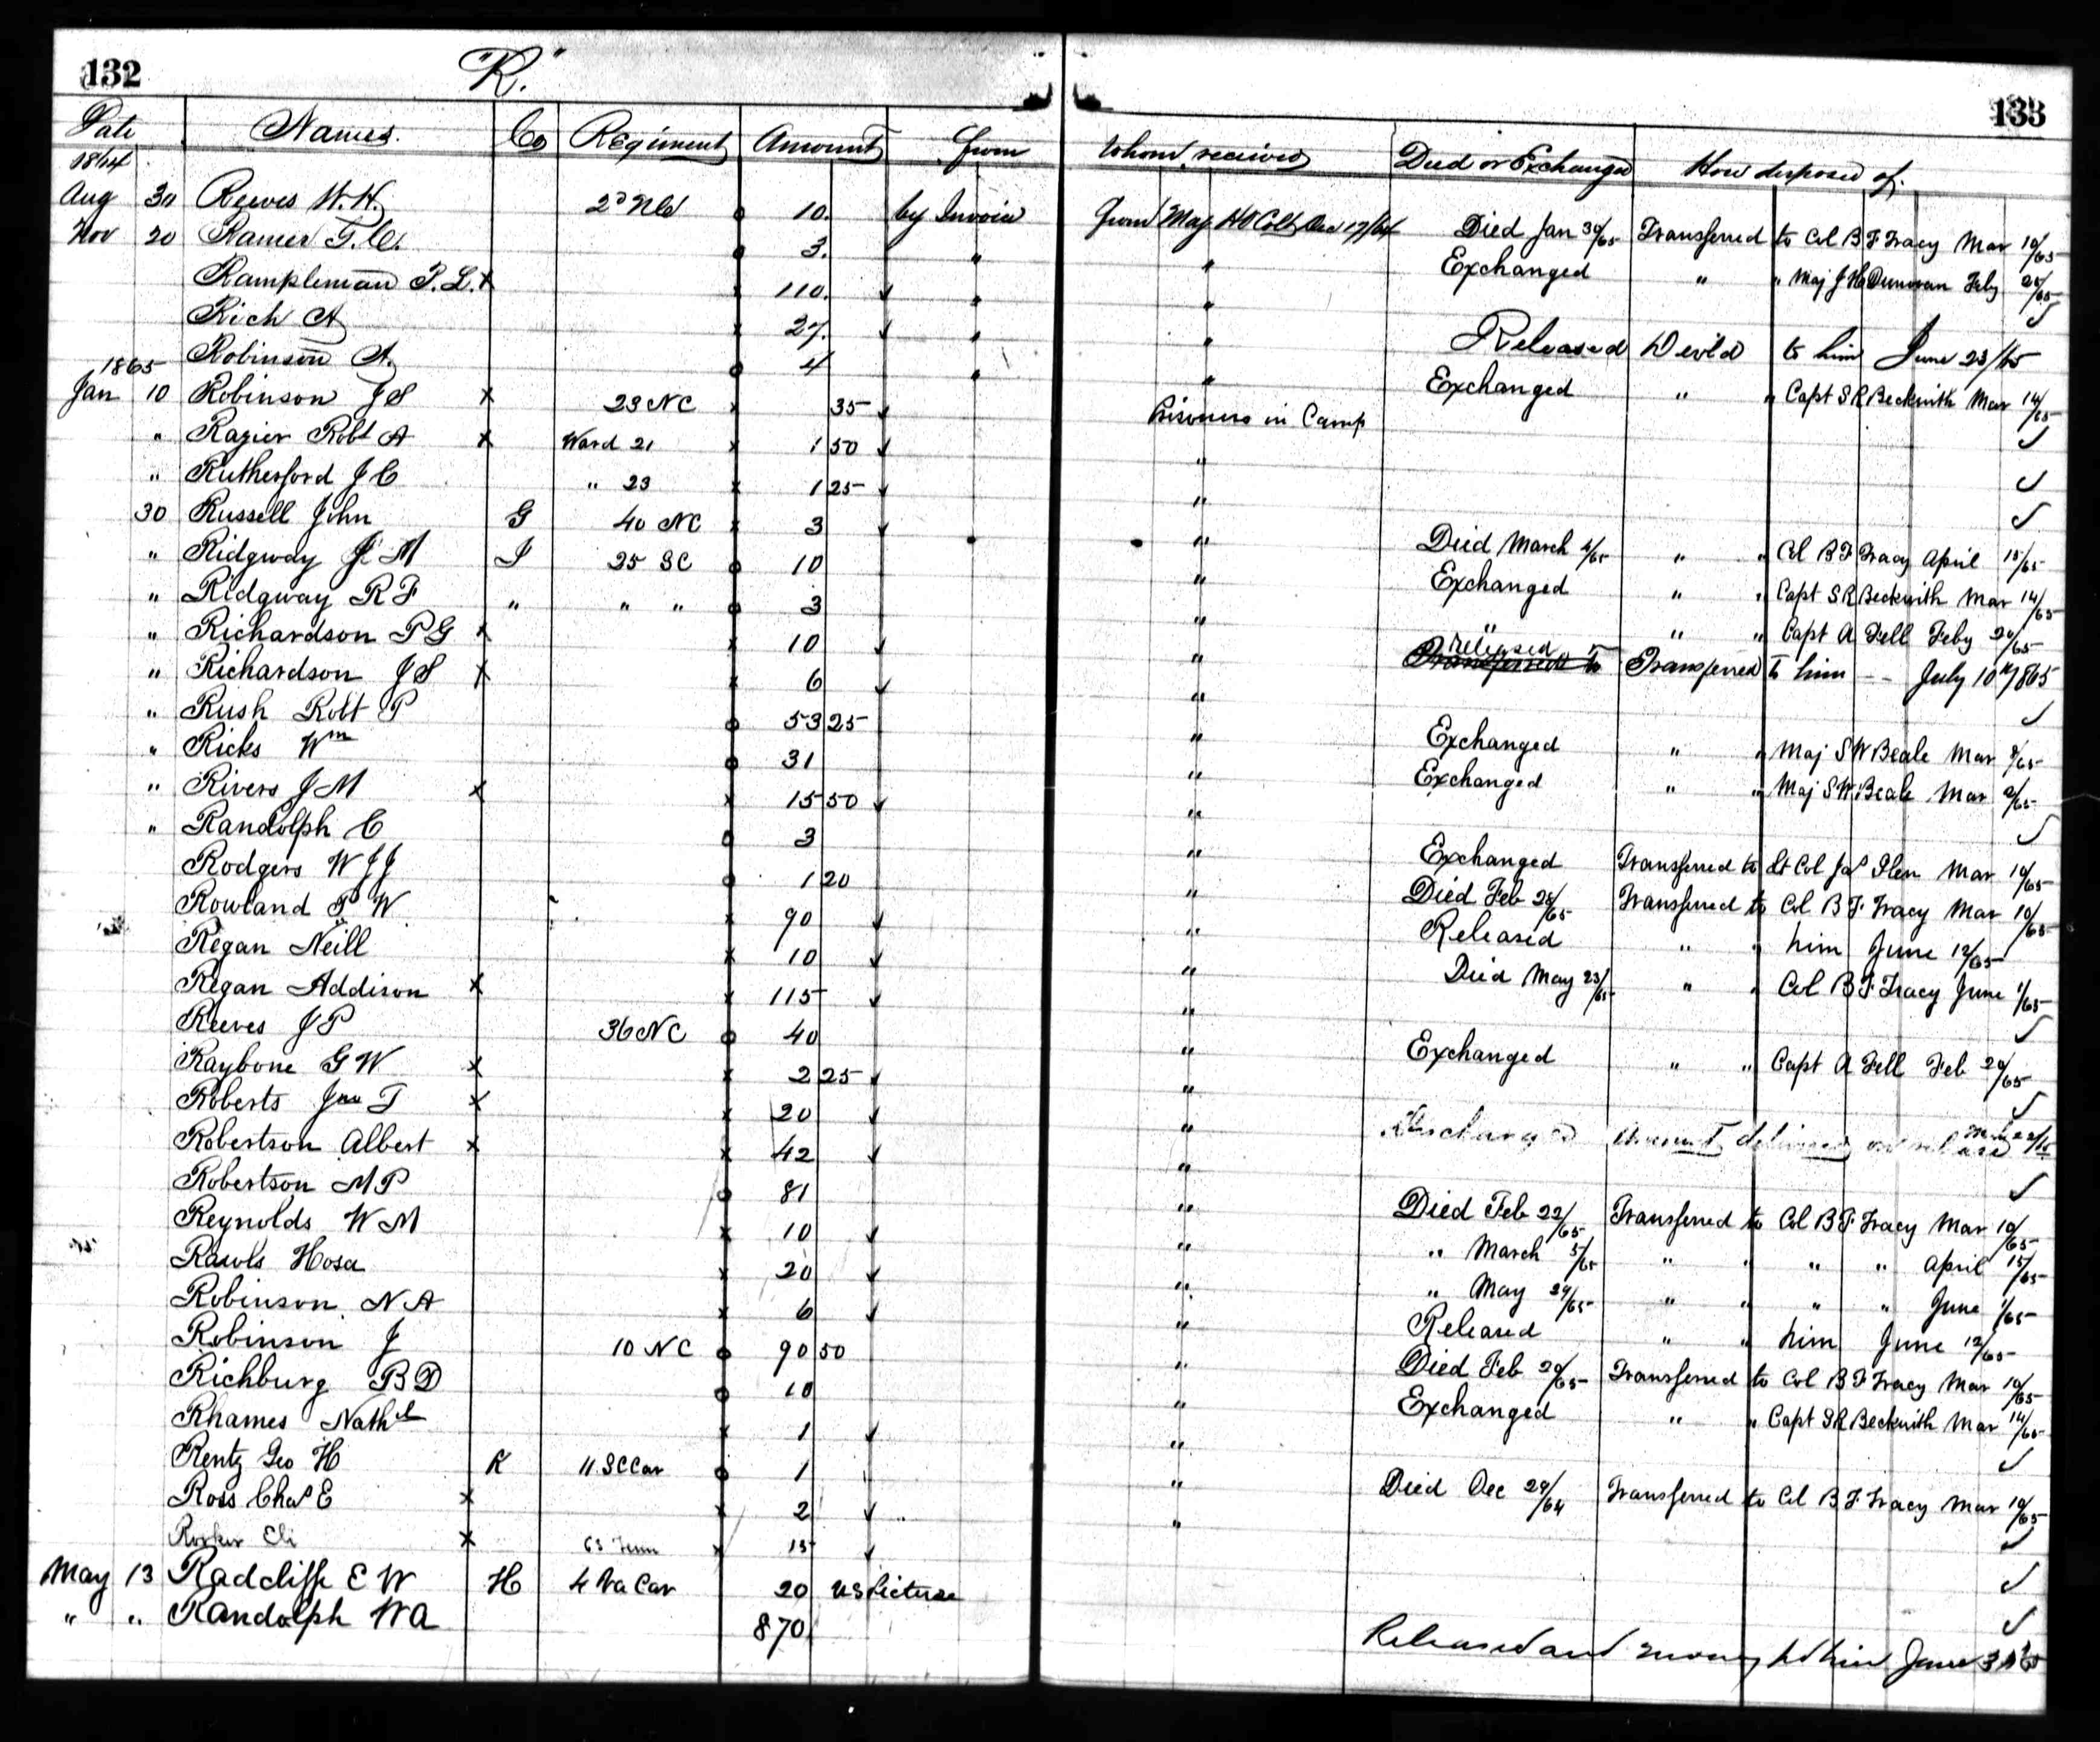 132
"R."
Date Names. Co Regiment Amount From
1864
Aug 30 Reeves W. H. 2d Md 10. by Invoice
Nov 20 Ramer T. C. 3. "
Rampleman P. L. x 110. "
Rich A 27. "
Robinson A. 4 "
1865
Jan 10 Robinson J S x 23 NC 35
" Razier Robt A x Ward 21 1 50
" Rutherford J C " 23 1 25
30 Russell John G 40 NC 3
" Ridgway J M I 25 SC 10
" Ridgway R F " " " 3
" Richardson P G x 10
" Richardson J S x 6
" Rush Robt P 53 25
" Ricks Wm 31
" Rivers J M x 15 50
" Randolph C 3
Rodgers W J J 1 20
Rowland P W 90
Regan Neill 10
Regan Addison x 115
Reeves J P 36 NC 40
Raybone G W x 2 25
Roberts Jno T x 20
Robertson Albert x 42
Robertson M P 81
Reynolds W M 10
Rawls Hosa 20
Robinson N A 6
Robinson J 10 NC 90 50
Richburg B D 10
Rhames Nathl 1
Rentz Geo H K 11 SC Cav 1
Ross Chas E x 2
Eli x 63 Tenn 15
May 13 Radcliffe E W H 4 Va Cav 20 US Picture
" " Randolph W A 870
133
Whom received Died or Exchanged How disposed of.
From Maj H O Colt Dec 17/64 Died Jan 30/65 Transferred to Col B F Tracy Mar 10/65
" Exchanged " " Maj J H Dunovan Feby 25/65
"
" Released Deliv'd to him June 23/65
" Exchanged " " Capt S R Beckwith Mar 14/65
Prisoners in Camp
"
"
" Died March 4/65 " " Col B F Tracy April 15/65
" Exchanged " " Capt S R Beckwith Mar 14/65
" " " " Capt A Fell Feby 20/65
" released Transferred to Transferred to him -- July 10th 1865
"
" Exchanged " " Maj S W Beale Mar 2/65
" Exchanged " " Maj S W Beale Mar 2/65
"
" Exchanged Transferred to Lt Col Jas Glen Mar 10/65
" Died Feb 28/65 Transferred to Col B F Tracy Mar 10/65
" Released " " him June 12/65
" Died May 23/65 " " Col B F Tracy June 1/65
"
" Exchanged " " Capt A Fell Feb 20/65
"
" Discharged Amount delivered on release
"
" Died Feb 22/65 Transferred to Col B F Tracy Mar 10/65
" " March 5/65 " " " " April 15/65
" " May 29/65 " " " " June 1/65
" Released " " him June 12/65
" Died Feb 20/65 Transferred to Col B F Tracy Mar 10/65
" Exchanged " " Capt S R Beckwith Mar 14/65
"
" Died Dec 29/64 Transferred to Col B F Tracy Mar 10/65
"
Released and money to him June